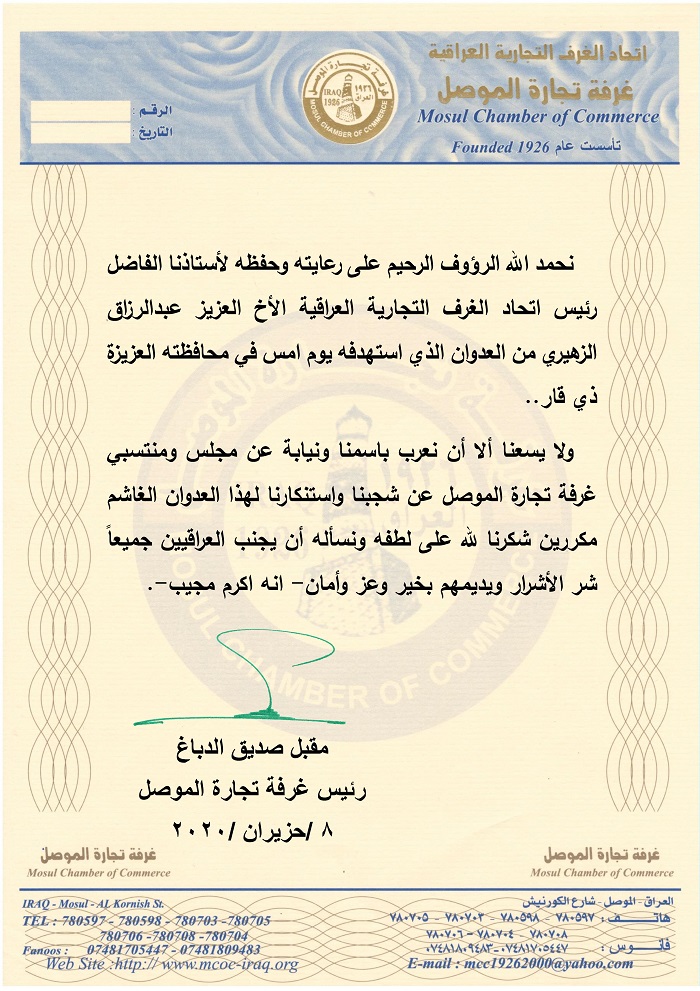 اتحاد الغرف التجارية العراقية
غرفة تجارة الموصل
Mosul Chamber of Commerce
Founded 1926 تأسست عام
غرفة تجارة الموصل
IRAQ ١٩٢٦
1926 العراق
MOSUL CHAMBER OF COMMERCE
الرقم :
التاريخ :
نحمد الله الرؤوف الرحيم على رعايته وحفظه لأستاذنا الفاضل
رئيس اتحاد الغرف التجارية العراقية الأخ العزيز عبدالرزاق
الزهيري من العدوان الذي استهدفه يوم امس في محافظته العزيزة
ذي قار..
ولا يسعنا ألا أن نعرب باسمنا ونيابة عن مجلس ومنتسبي
غرفة تجارة الموصل عن شجبنا واستنكارنا لهذا العدوان الغاشم
مكررين شكرنا لله على لطفه ونسأله أن يجنب العراقيين جميعاً
شر الأشرار ويديمهم بخير وعز وأمان- انه اكرم مجيب-.
مقبل صديق الدباغ
رئيس غرفة تجارة الموصل
٨ /حزيران /٢٠٢٠
غرفة تجارة الموصل
Mosul Chamber of Commerce
غرفة تجارة الموصل
Mosul Chamber of Commerce
العراق - الموصل - شارع الكورنيش
هاتف : ٧٨٠٥٩٧ - ٧٨٠٥٩٨ - ٧٨٠٧٠٣ - ٧٨٠٧٠٥
٧٨٠٧٠٨ - ٧٨٠٧٠٤ - ٧٨٠٧٠٦
فانوس : ٠٧٤٨١٧٠٥٤٤٧-٠٧٤٨١٨٠٩٤٨٣
E-mail : mcc19262000@yahoo.com
IRAQ - Mosul - AL Kornish St.
TEL : 780597 - 780598 - 780703 -780705
780706 -780708 -780704
Fanoos : 07481705447 - 07481809483
Web Site :http:// www.mcoc-iraq.org